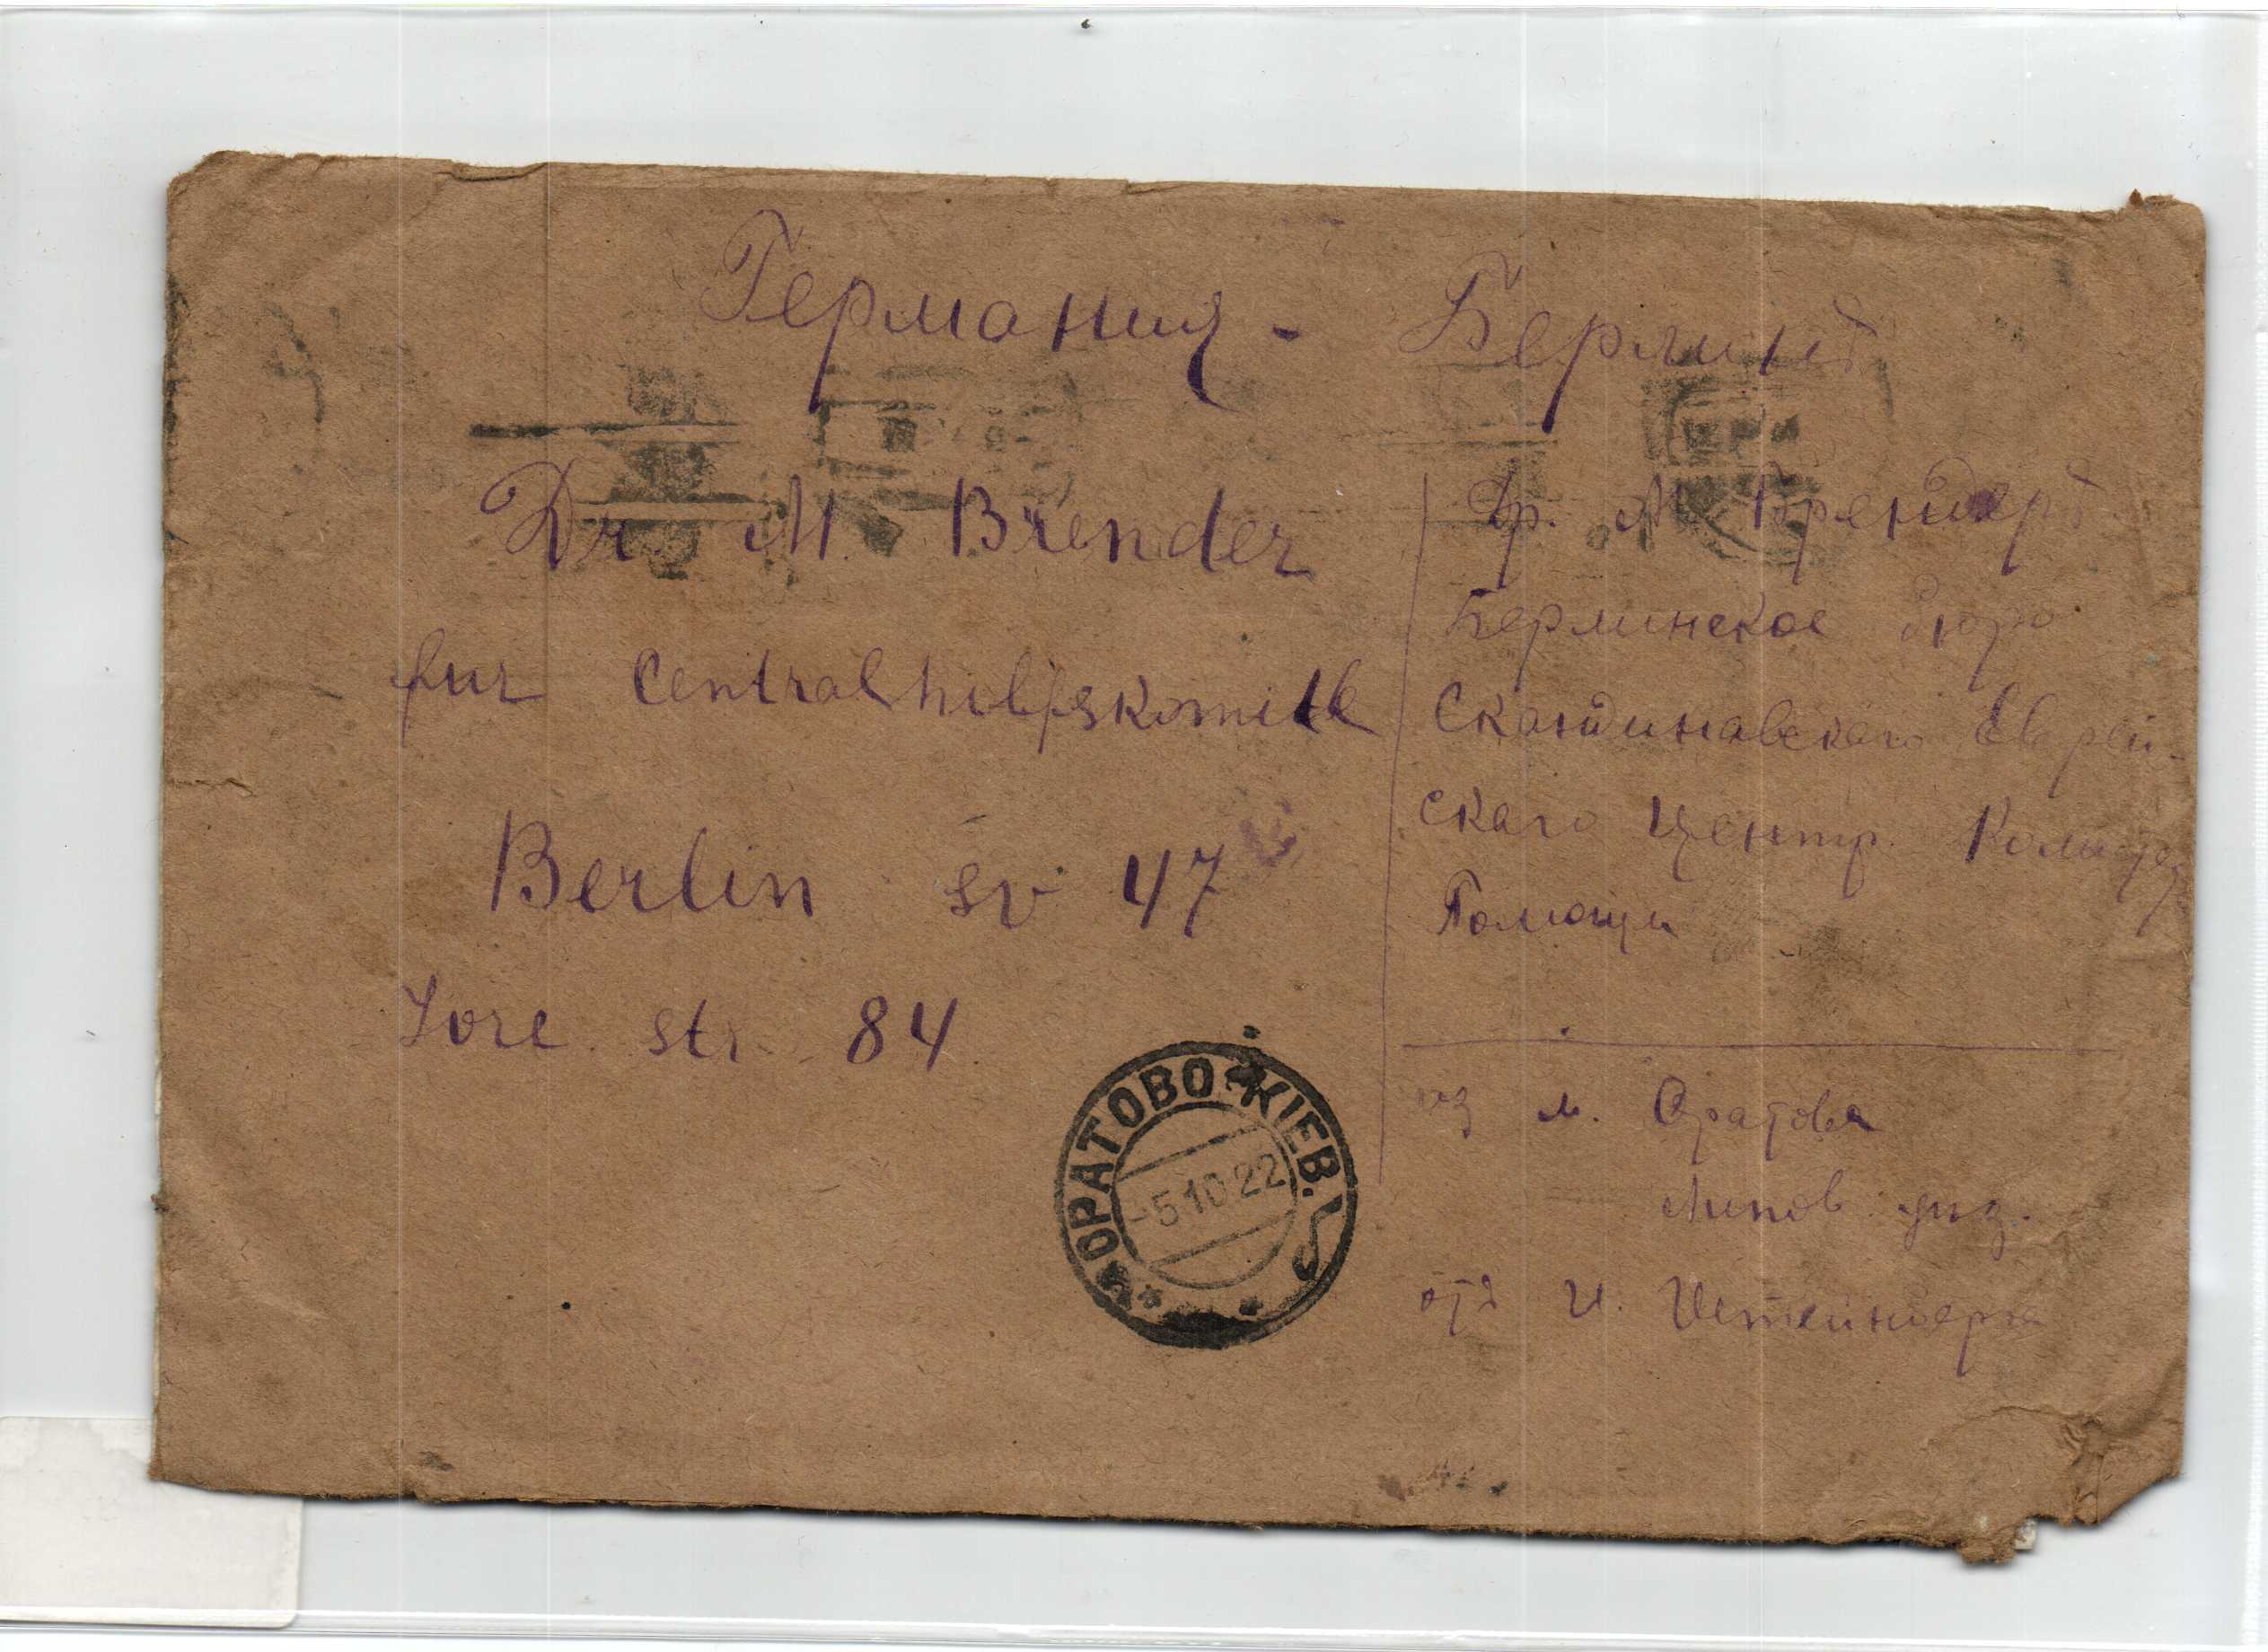 Германия - Берлинъ
Dr M. Brender
fur Centralhilfskomite
Berlin sv 47
Yore str. 84
Др. М Брендеръ
Берлинское бюро
Скандинавскаго Еврей-
скаго Центр. Комитета
Помощи
из м. Оратова
Липов. уез.
отъ И.
ОРАТОВО КІЕВ.
-5.10.22